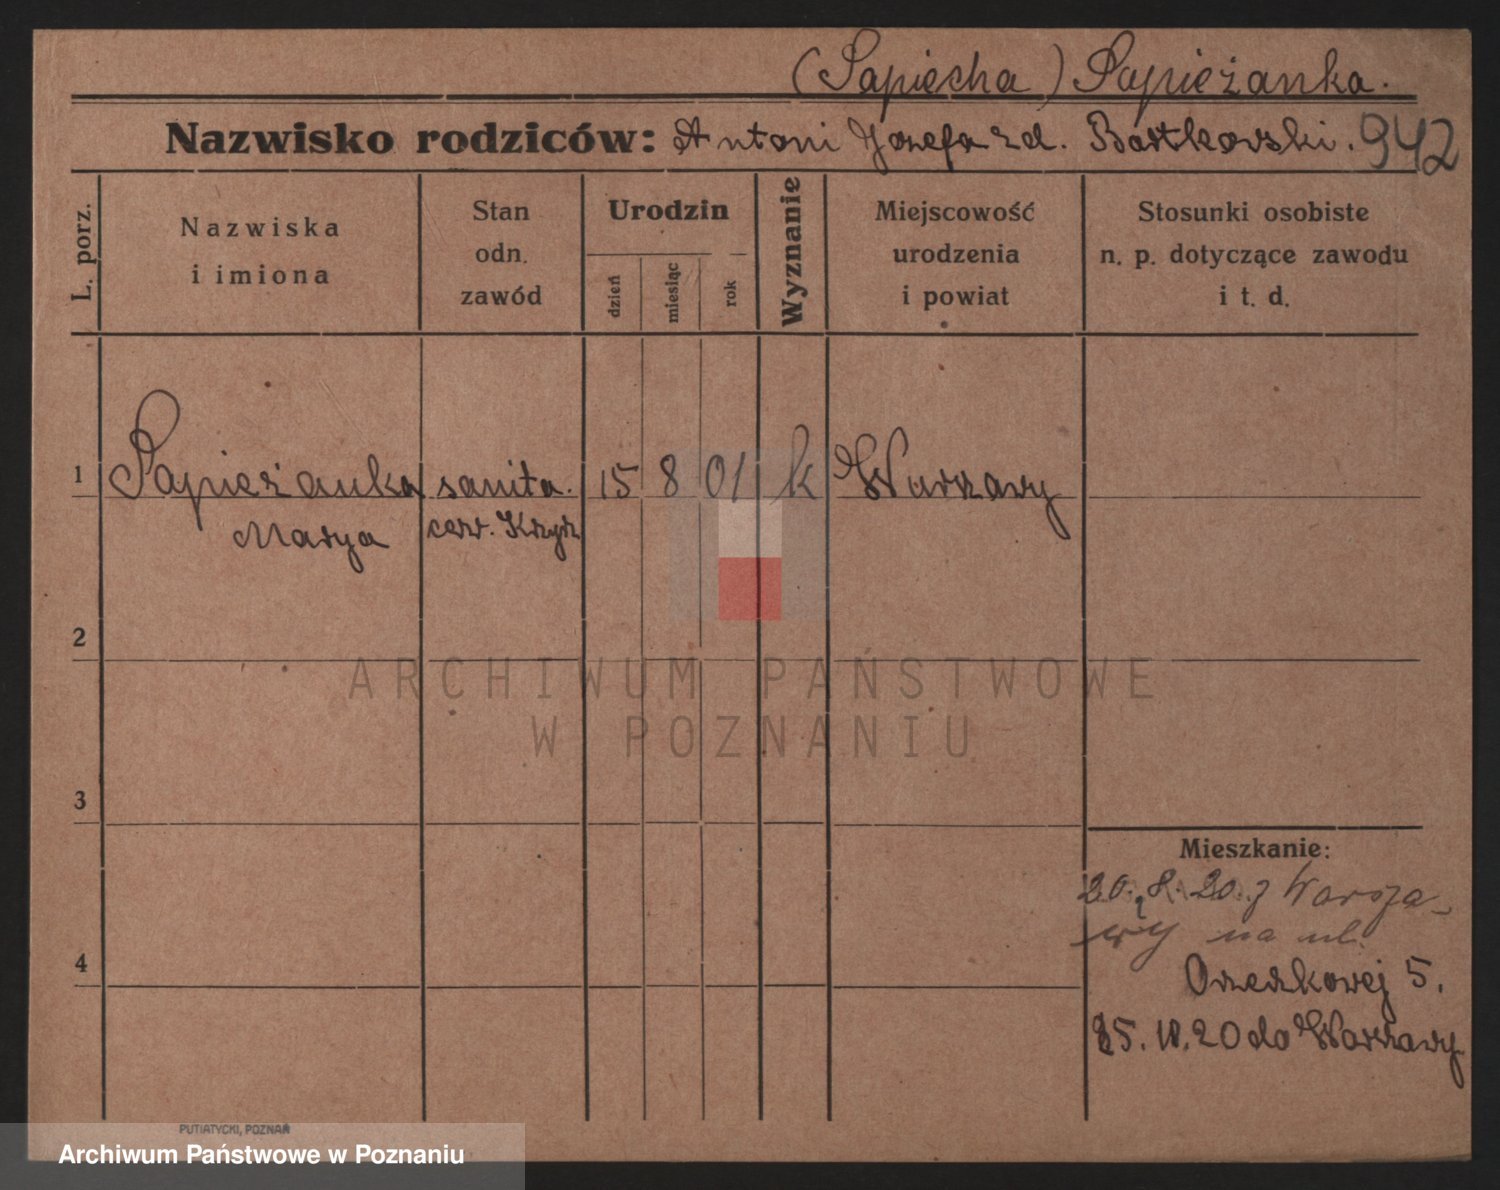 (Sapiecha) Sapieżanka.
Nazwisko rodziców: Antoni Józefa zd. Bartkowski. 942
L. porz.
Nazwiska i imiona
Stan odn. zawód
Urodzin
dzień
miesiąc
rok
Wyznanie
Miejscowość urodzenia i powiat
Stosunki osobiste n. p. dotyczące zawodu i t. d.
1 Sapieżanka sanita. 15 8 01 k Warszawy
Marya czerw. Krzyż
2
3
4
Mieszkanie:
20. 8. 20. z Warsza-
wy na ul.
Orzeszkowej 5.
do Warszawy
PUTIATYCKI, POZNAŃ
ARCHIWUM PAŃSTWOWE
W POZNANIU
Archiwum Państwowe w Poznaniu